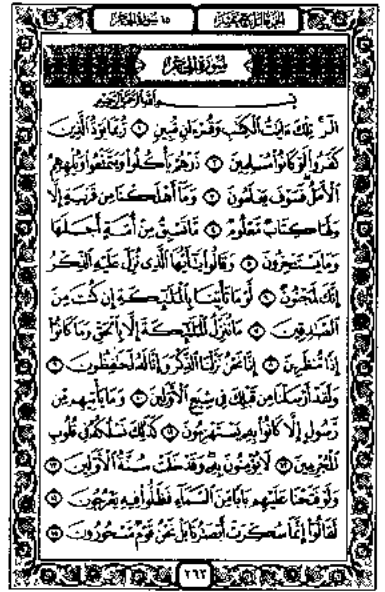 الجزء الرابع عشر
١٥ سورة الحجر
سُورَةُ الحِجْرِ
بِسْمِ اللَّهِ الرَّحْمَٰنِ الرَّحِيمِ
الٓر تِلْكَ ءَايَٰتُ الْكِتَٰبِ وَقُرْءَانٍ مُّبِينٍ ١ رُّبَمَا يَوَدُّ الَّذِينَ
كَفَرُوا لَوْ كَانُوا مُسْلِمِينَ ٢ ذَرْهُمْ يَأْكُلُوا وَيَتَمَتَّعُوا وَيُلْهِهِمُ
الْأَمَلُ فَسَوْفَ يَعْلَمُونَ ٣ وَمَا أَهْلَكْنَا مِن قَرْيَةٍ إِلَّا
وَلَهَا كِتَابٌ مَّعْلُومٌ ٤ مَّا تَسْبِقُ مِنْ أُمَّةٍ أَجَلَهَا
وَمَا يَسْتَـْٔخِرُونَ ٥ وَقَالُوا يَٰأَيُّهَا الَّذِي نُزِّلَ عَلَيْهِ الذِّكْرُ
إِنَّكَ لَمَجْنُونٌ ٦ لَّوْ مَا تَأْتِينَا بِالْمَلَٰئِكَةِ إِن كُنتَ مِنَ
الصَّٰدِقِينَ ٧ مَا نُنَزِّلُ الْمَلَٰئِكَةَ إِلَّا بِالْحَقِّ وَمَا كَانُوا
إِذًا مُّنظَرِينَ ٨ إِنَّا نَحْنُ نَزَّلْنَا الذِّكْرَ وَإِنَّا لَهُ لَحَٰفِظُونَ ٩
وَلَقَدْ أَرْسَلْنَا مِن قَبْلِكَ فِي شِيَعِ الْأَوَّلِينَ ١٠ وَمَا يَأْتِيهِم مِّن
رَّسُولٍ إِلَّا كَانُوا بِهِ يَسْتَهْزِءُونَ ١١ كَذَٰلِكَ نَسْلُكُهُ فِي قُلُوبِ
الْمُجْرِمِينَ ١٢ لَا يُؤْمِنُونَ بِهِ وَقَدْ خَلَتْ سُنَّةُ الْأَوَّلِينَ ١٣
وَلَوْ فَتَحْنَا عَلَيْهِم بَابًا مِّنَ السَّمَاءِ فَظَلُّوا فِيهِ يَعْرُجُونَ ١٤
لَقَالُوا إِنَّمَا سُكِّرَتْ أَبْصَٰرُنَا بَلْ نَحْنُ قَوْمٌ مَّسْحُورُونَ ١٥
٢٦٢